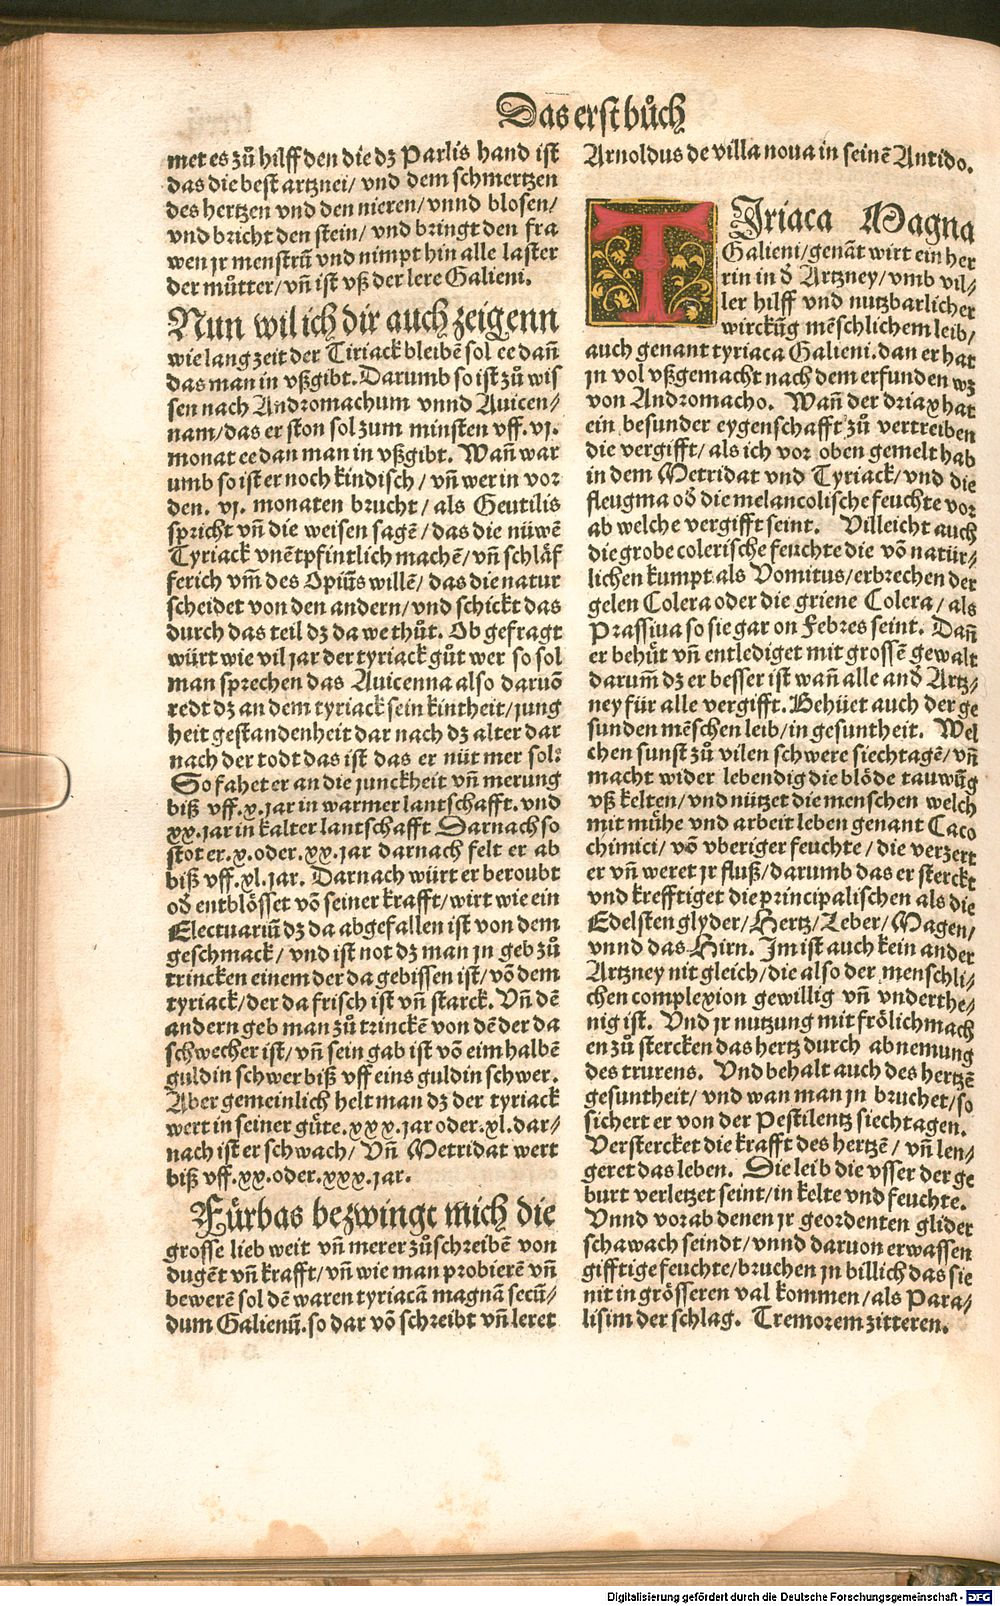 Das erst bůch
met es zů hilff den die dz Parlis hand ist
das die best artznei/ vnd dem schmertzen
des hertzen vnd den nieren/ vnnd blosen/
vnd bricht den stein/ vnd bringt den fra
wen jr menstrũ vnd nimpt hin alle laster
der můtter/ vñ ist vß der lere Galieni.
Nun wil ich dir auch zeigenn
wie lang zeit der Tiriack bleibẽ sol ee dañ
das man in vßgibt. Darumb so ist zů wis
sen nach Andromachum vnnd Auicen/
nam/ das er ston sol zum minsten vff. vj.
monat ee dan man in vßgibt. Wañ war
umb so ist er noch kindisch/ vñ wer in vor
den. vj. monaten brucht/ als Gentilis
spricht vñ die weisen sagẽ/ das die nüwẽ
Tyriack vnẽtpfintlich machẽ/ vñ schläf
ferich vm̃ des Opiũs willẽ/ das die natur
scheidet von den andern/ vnd schickt das
durch das teil dz da we thůt. Ob gefragt
würt wie vil jar der tyriack gůt wer so sol
man sprechen das Auicenna also daruõ
redt dz an dem tyriack sein kintheit/ jung
heit gestandenheit dar nach dz alter dar
nach der todt das ist das er nüt mer sol:
So fahet er an die junckheit vñ merung
biß vff. x. jar in warmer lantschafft. vnd
xx. jar in kalter lantschafft Darnach so
stot er. x. oder. xx. jar darnach felt er ab
biß vff. xl. jar. Darnach würt er beroubt
od̃ entblösset võ seiner krafft/ wirt wie ein
Electuariũ dz da abgefallen ist von dem
geschmack/ vnd ist not dz man jn geb zů
trincken einem der da gebissen ist/ võ dem
tyriack/ der da frisch ist vñ starck. Vñ dẽ
andern geb man zů trinckẽ von dẽ der da
schwecher ist/ vñ sein gab ist võ eim halbẽ
guldin schwer biß vff eins guldin schwer.
Aber gemeinlich helt man dz der tyriack
wert in seiner gůte. xxx. jar oder. xl. dar/
nach ist er schwach/ Vñ Metridat wert
biß vff. xx. oder. xxx. jar.
Fürbas bezwingt mich die
grosse lieb weit vñ merer zůschreibẽ von
dugẽt vñ krafft/ vñ wie man probierẽ vñ
bewerẽ sol dẽ waren tyriacã magnã secũ/
dum Galienũ. so dar võ schreibt vñ leret
Arnoldus de villa noua in seinẽ Antido.
TJriaca Magna
Galieni/ genãt wirt ein her
rin in d̃ Artzney/ vmb vil/
ler hilff vnd nutzbarlicher
wirckũg mẽschlichem leib/
auch genant tyriaca Galieni. dan er hat
jn vol vßgemacht nach dem erfunden wz
von Andromacho. Wañ der driax hat
ein besunder eygenschafft zů vertreiben
die vergifft/ als ich vor oben gemelt hab
in dem Metridat vnd Tyriack/ vnd die
fleugma od̃ die melancolische feuchte vor
ab welche vergifft seint. Villeicht auch
die grobe colerische feuchte die võ natür/
lichen kumpt als Vomitus/ erbrechen der
gelen Colera oder die griene Colera/ als
Prassiua so sie gar on Febres seint. Dañ
er behüt vñ entlediget mit grossẽ gewalt
darum̃ dz er besser ist wañ alle and̃ Artz/
ney für alle vergifft. Behüet auch der ge
sunden mẽschen leib/ in gesuntheit. Wel
chen sunst zů vilen schwere siechtagẽ/ vñ
macht wider lebendig die blöde tauwũg
vß kelten/ vnd nützet die menschen welch
mit můhe vnd arbeit leben genant Caco
chimici/ võ vberiger feuchte/ die verzert
er vñ weret jr fluß/ darumb das er sterckt
vnd krefftiget die principalischen als die
Edelsten glyder/ Hertz/ Leber/ Magen/
vnnd das Hirn. Im ist auch kein ander
Artzney nit gleich/ die also der menschli/
chen complexion gewillig vñ vnderthe/
nig ist. Vnd jr nutzung mit frölich mach
en zů stercken das hertz durch abnemung
des trurens. Vnd behalt auch des hertzẽ
gesuntheit/ vnd wan man jn bruchet/ so
sichert er von der Pestilentz siechtagen.
Verstercket die krafft des hertzẽ/ vñ len/
geret das leben. Die leib die vsser der ge
burt verletzet seint/ in kelte vnd feuchte.
Vnnd vorab denen jr geordenten glider
schawach seindt/ vnnd daruon erwassen
gifftige feuchte/ bruchen jn billich das sie
nit in grösseren val kommen/ als Para/
lisim der schlag. Tremorem zitteren.
Digitalisierung gefördert durch die Deutsche Forschungsgemeinschaft - DFG